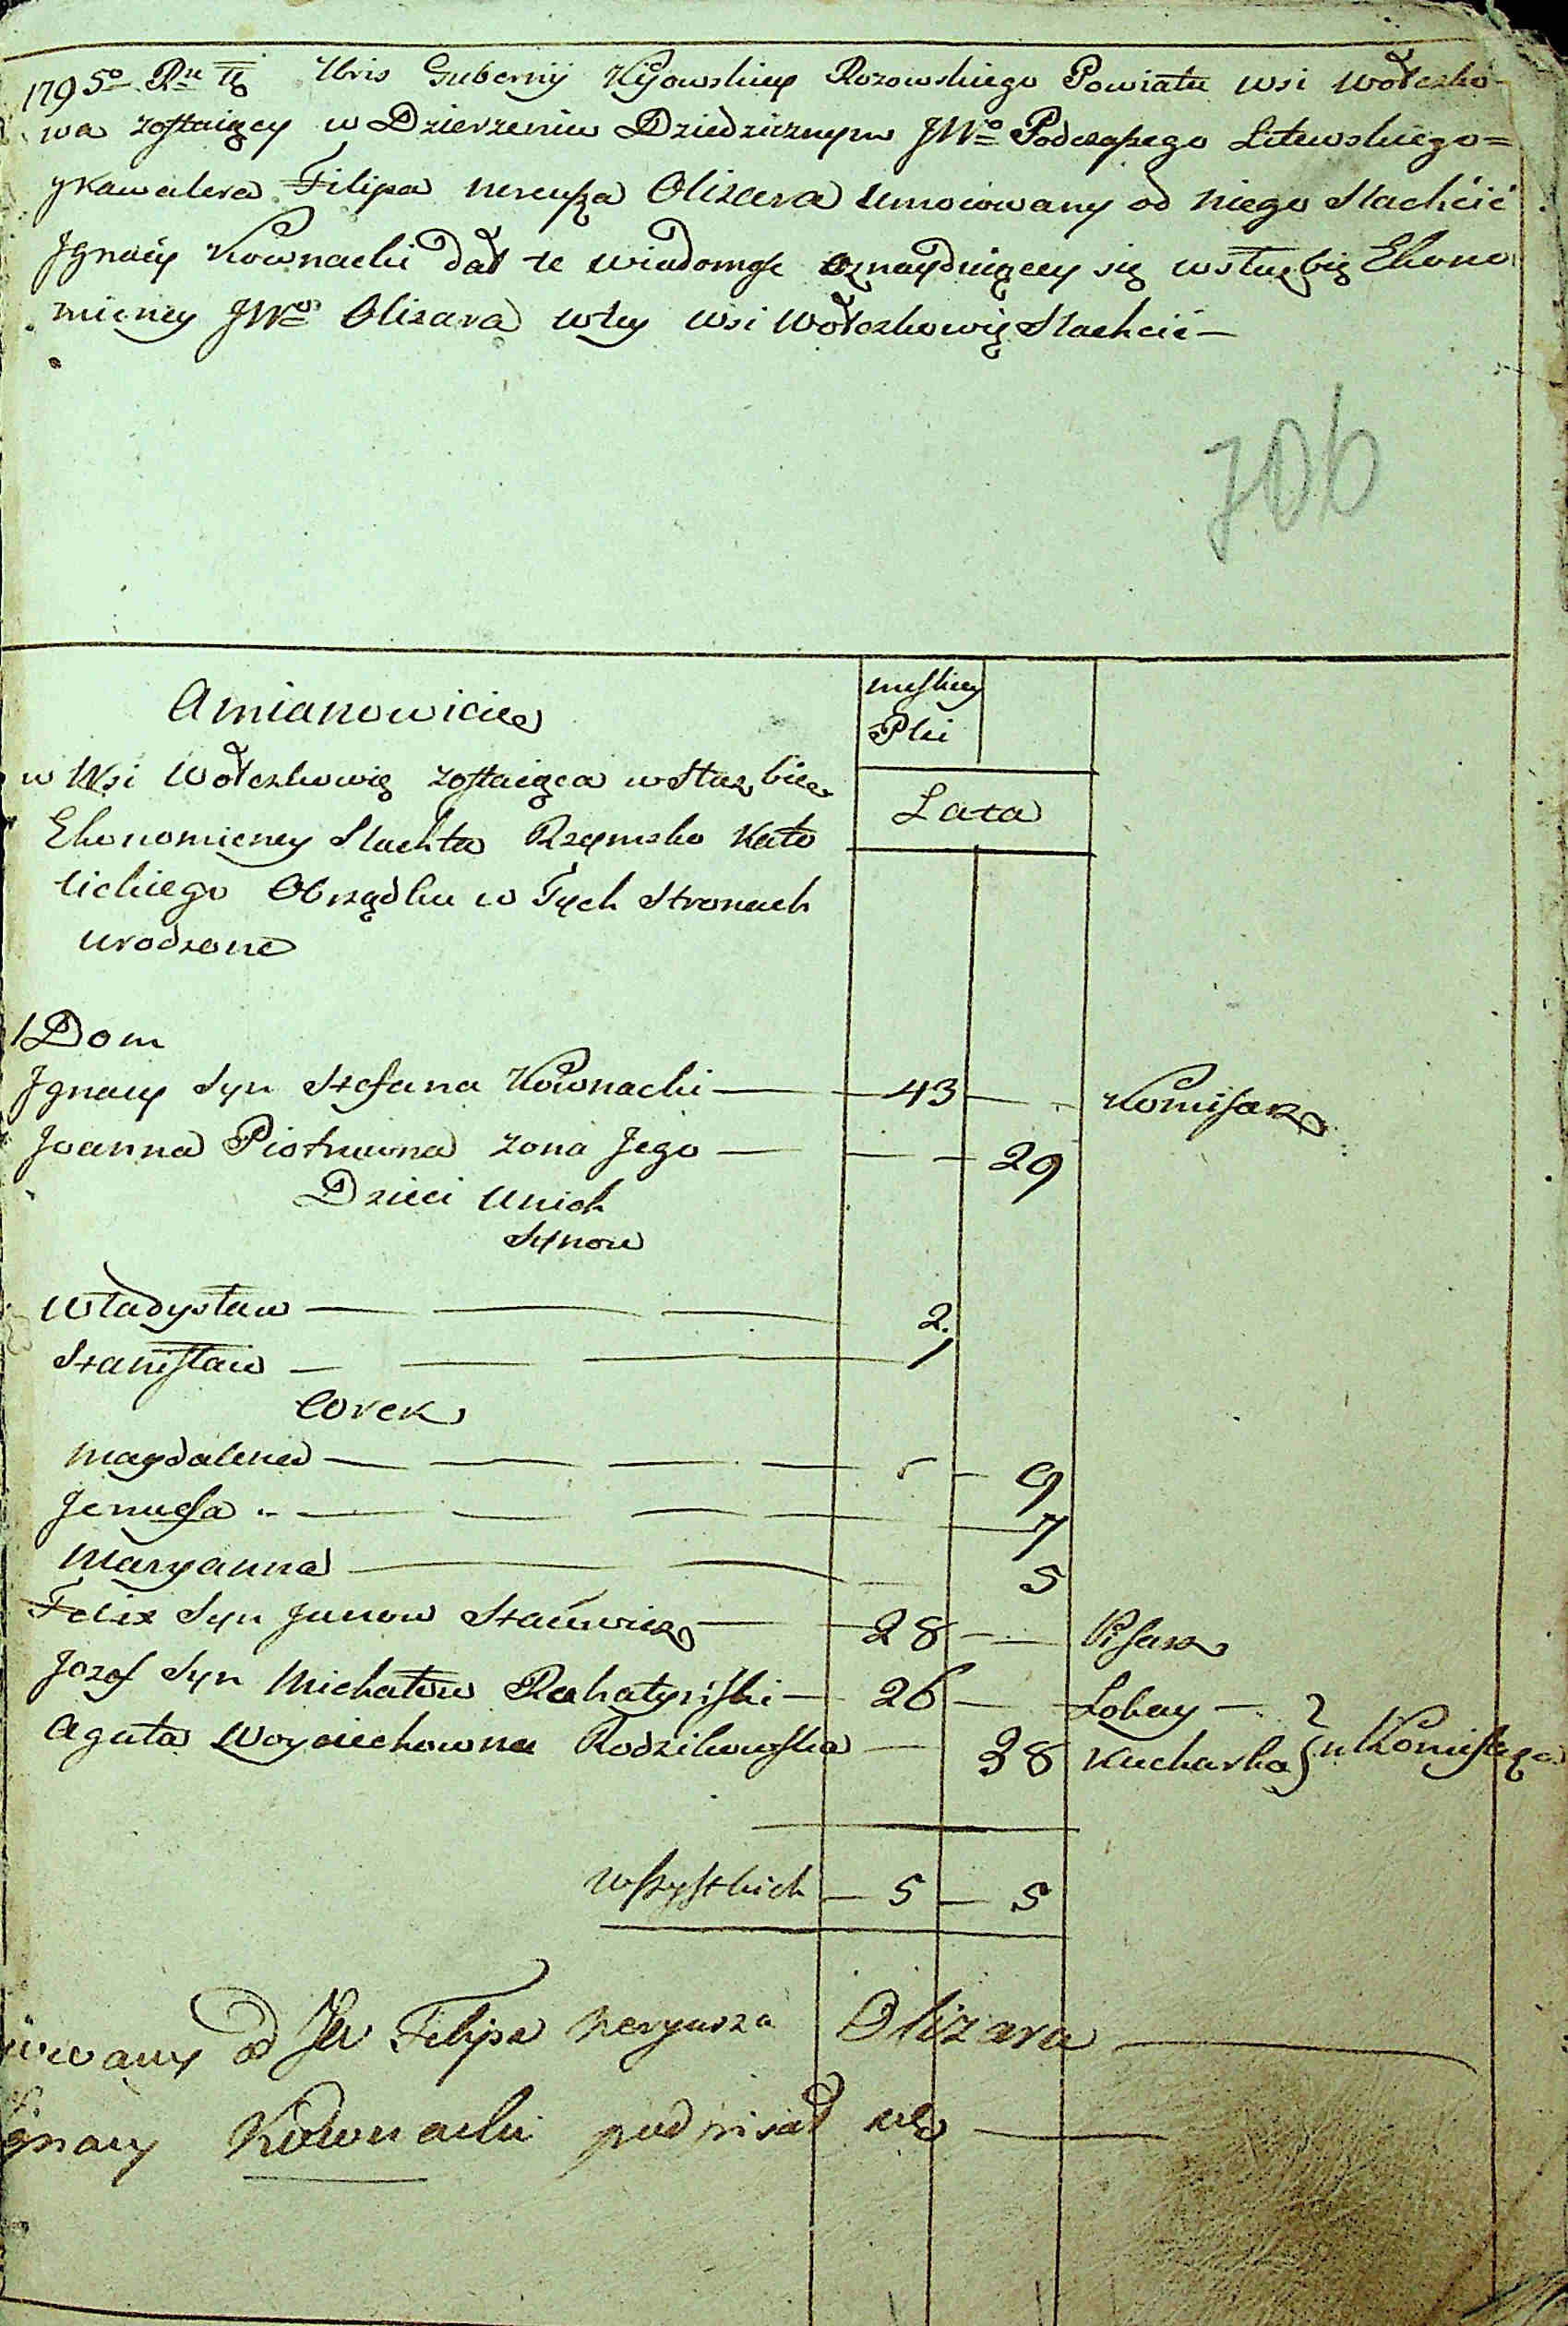 1795º Ru Xbris Gubernij Kijowskiey Rozowskiego Powiatu wsi Wołczko-
wa zostaiący w Dzierzeniu Dziedzicznym JWº Podczaszego Litewskiego=
y kawalera Filipa nereusza Olizara Umocowany od niego Slachcić
Jgnacy Kownacki dał te wiadomość o znayduiącey się w służbię Ekono
miczney JWº Olizara w tey wsi Wołczkowię Slachcie—
706
Amianowicie
męskiey
Płci
w Wsi Wołczkowię zostaiąca w Służbie
Lata
Ekonomiczney Slachta Rzymsko Kato
lickiego Obrządku w Tych Stronach
urodzone
1 Dom
Jgnacy Syn Stefana Kownacki — 43 — Komisarz
Joanna Piotruwna zona Jego — 29
Dzieci Unich
Synow
Władysław — 2.
Stanisław — 1
Corek
Magdalena — 9
Jenuefa — 7
Maryanna — 5
Felix Syn Janow — 28 — Pisarz
Jozef Syn Michałow Rohatyński — 26 — Lokay —
Agata Woyciechowna Rodzikowska — 38 Kucharka } u Komisarza
wszystkich — 5 — 5
od Jw Filipa Neryusza Olizara —
Kownacki podpisał się —